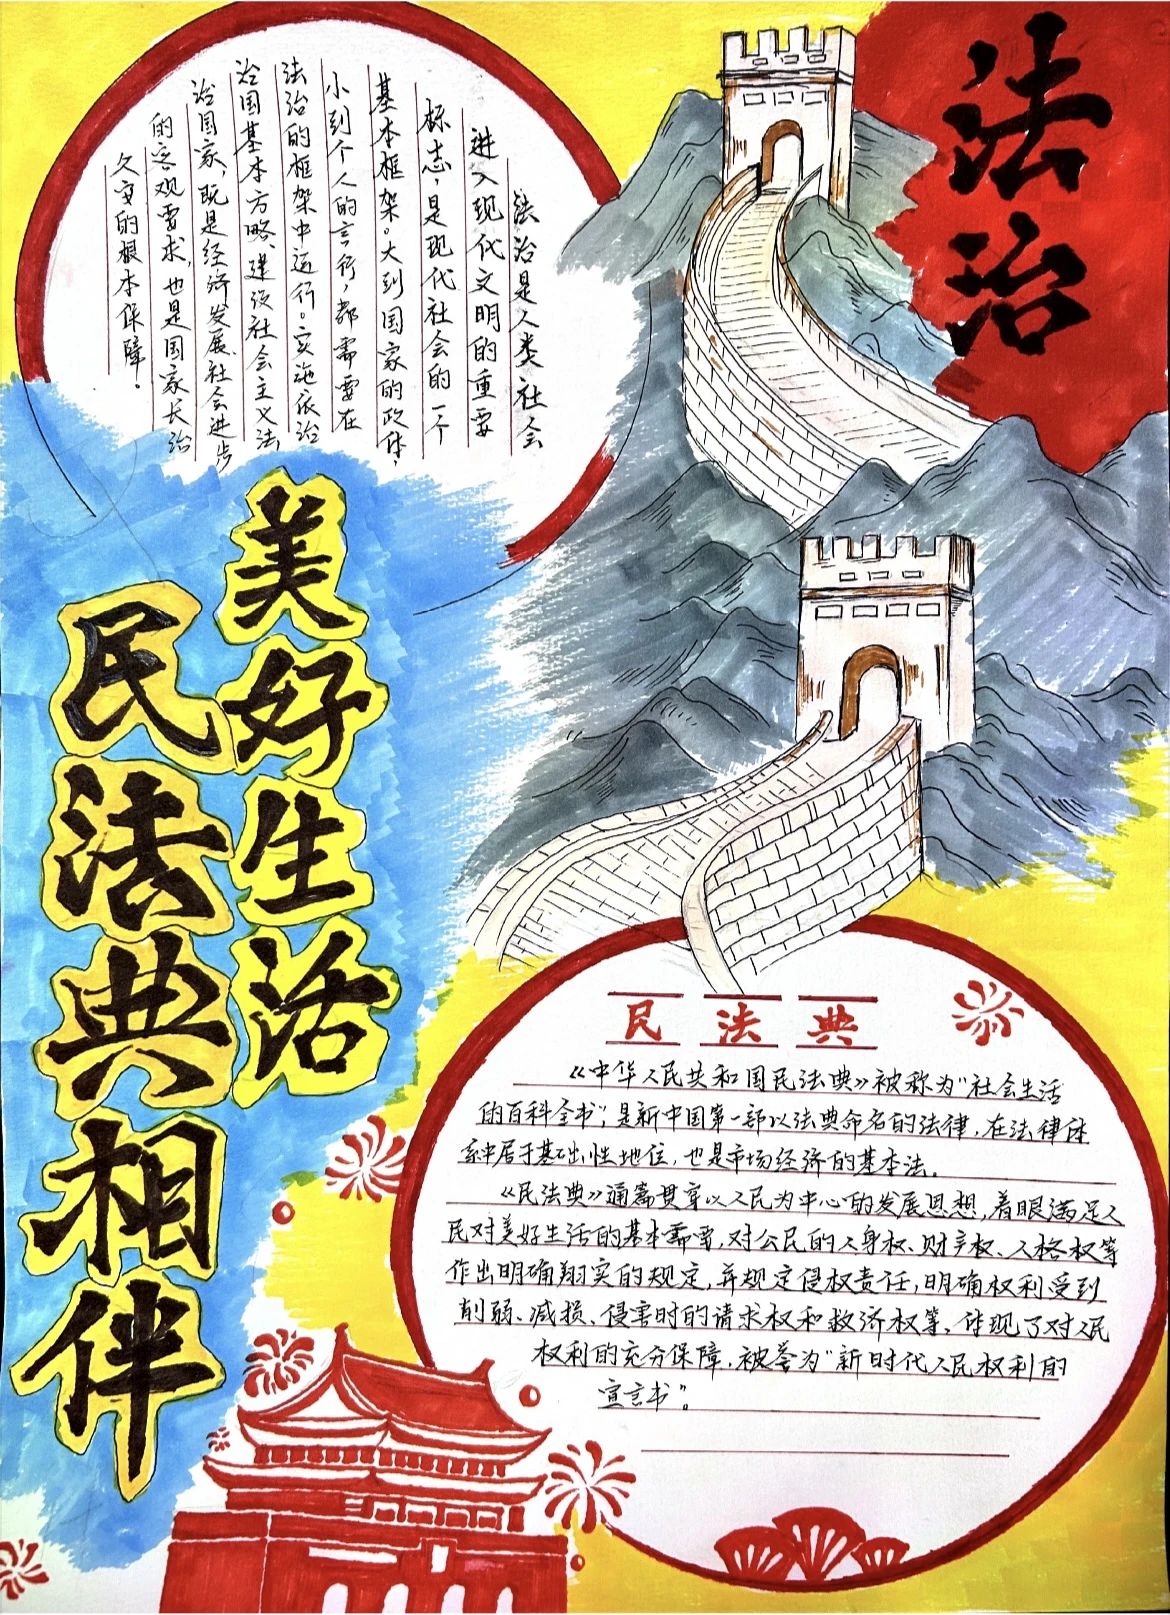 法治
法治是人类社会
进入现代文明的重要
标志，是现代社会的一个
基本框架。大到国家的政体，
小到个人的言行，都需要在
法治的框架中运行。实施依法
治国基本方略、建设社会主义法
治国家，既是经济发展、社会进步
的客观要求，也是国家长治
久安的根本保障。
美好生活
民法典相伴
民法典
《中华人民共和国民法典》被称为“社会生活
的百科全书”，是新中国第一部以法典命名的法律，在法律体
系中居于基础性地位，也是市场经济的基本法。
《民法典》通篇贯穿以人民为中心的发展思想，着眼满足人
民对美好生活的基本需要，对公民的人身权、财产权、人格权等
作出明确翔实的规定，并规定侵权责任，明确权利受到
削弱、减损、侵害时的请求权和救济权等，体现了对人民
权利的充分保障，被誉为“新时代人民权利的
宣言书”。